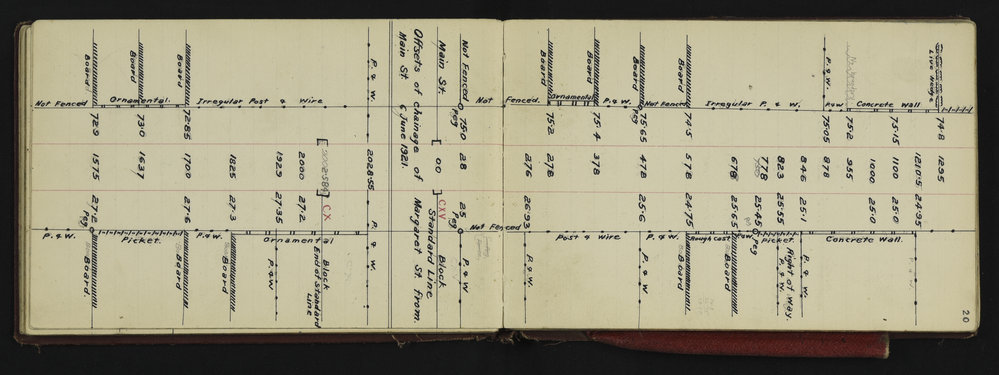 20
Live Hedge 74·8 1295
Concrete Wall
1210·5 24·95
75·15 1100 25·0
1000 25·0
Concrete Wall.
75·2 955
P.&W.
P.&W. 75·05 878
846 26·1
Right of Way.
823 25·55 P.&W.
778 25·45 Peg
Picket.
Irregular P. & W.
678 25·65 Board
Rough Cast
Board 74·5 578 24·75 Board
Not Fenced
P.&W.
Board 75·65 478 25·6 P.&W
Peg
P.&W.
Board 75·4 378
Post & Wire
Ornamental
Board 75·2 278
276 26·93 P.&W.
Fenced.
Not
Not Fenced
Not Fenced 75·0 28 25 P.&W
Peg Peg
Main St. [ 00 ] CXV Block
Standard Line
Offsets of chainage of Margaret St. from
Main St. 6 June 1921.
P.&W. 2028·55 P.&W.
[ ] C.X Block
End of Standard Line
2000 27·2
Irregular Post & Wire
Ornamental
1929 27·35 P.&W
1825 27·3 Board
P.&W.
Board 72·85 1700 27·6 Board
Ornamental.
Picket.
Board 73·0 1637
Board 72·9 1575 27·2 Peg Board.
Not Fenced
P.&W.